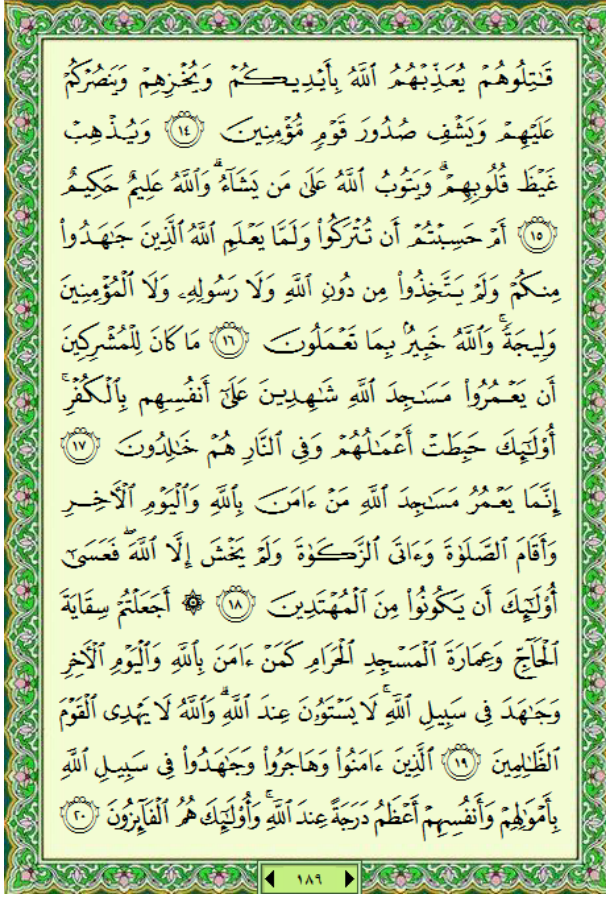 قَٰتِلُوهُمْ يُعَذِّبْهُمُ ٱللَّهُ بِأَيْدِيكُمْ وَيُخْزِهِمْ وَيَنصُرْكُمْ
عَلَيْهِمْ وَيَشْفِ صُدُورَ قَوْمٍ مُّؤْمِنِينَ ١٤ وَيُذْهِبْ
غَيْظَ قُلُوبِهِمْ ۗ وَيَتُوبُ ٱللَّهُ عَلَىٰ مَن يَشَآءُ ۗ وَٱللَّهُ عَلِيمٌ حَكِيمٌ
١٥ أَمْ حَسِبْتُمْ أَن تُتْرَكُوا۟ وَلَمَّا يَعْلَمِ ٱللَّهُ ٱلَّذِينَ جَٰهَدُوا۟
مِنكُمْ وَلَمْ يَتَّخِذُوا۟ مِن دُونِ ٱللَّهِ وَلَا رَسُولِهِۦ وَلَا ٱلْمُؤْمِنِينَ
وَلِيجَةً ۚ وَٱللَّهُ خَبِيرٌۢ بِمَا تَعْمَلُونَ ١٦ مَا كَانَ لِلْمُشْرِكِينَ
أَن يَعْمُرُوا۟ مَسَٰجِدَ ٱللَّهِ شَٰهِدِينَ عَلَىٰٓ أَنفُسِهِم بِٱلْكُفْرِ ۚ
أُو۟لَٰٓئِكَ حَبِطَتْ أَعْمَٰلُهُمْ وَفِى ٱلنَّارِ هُمْ خَٰلِدُونَ ١٧
إِنَّمَا يَعْمُرُ مَسَٰجِدَ ٱللَّهِ مَنْ ءَامَنَ بِٱللَّهِ وَٱلْيَوْمِ ٱلْـَٔاخِرِ
وَأَقَامَ ٱلصَّلَوٰةَ وَءَاتَى ٱلزَّكَوٰةَ وَلَمْ يَخْشَ إِلَّا ٱللَّهَ ۖ فَعَسَىٰٓ
أُو۟لَٰٓئِكَ أَن يَكُونُوا۟ مِنَ ٱلْمُهْتَدِينَ ١٨ ۞ أَجَعَلْتُمْ سِقَايَةَ
ٱلْحَآجِّ وَعِمَارَةَ ٱلْمَسْجِدِ ٱلْحَرَامِ كَمَنْ ءَامَنَ بِٱللَّهِ وَٱلْيَوْمِ ٱلْـَٔاخِرِ
وَجَٰهَدَ فِى سَبِيلِ ٱللَّهِ ۚ لَا يَسْتَوُۥنَ عِندَ ٱللَّهِ ۗ وَٱللَّهُ لَا يَهْدِى ٱلْقَوْمَ
ٱلظَّٰلِمِينَ ١٩ ٱلَّذِينَ ءَامَنُوا۟ وَهَاجَرُوا۟ وَجَٰهَدُوا۟ فِى سَبِيلِ ٱللَّهِ
بِأَمْوَٰلِهِمْ وَأَنفُسِهِمْ أَعْظَمُ دَرَجَةً عِندَ ٱللَّهِ ۚ وَأُو۟لَٰٓئِكَ هُمُ ٱلْفَآئِزُونَ ٢٠
١٨٩